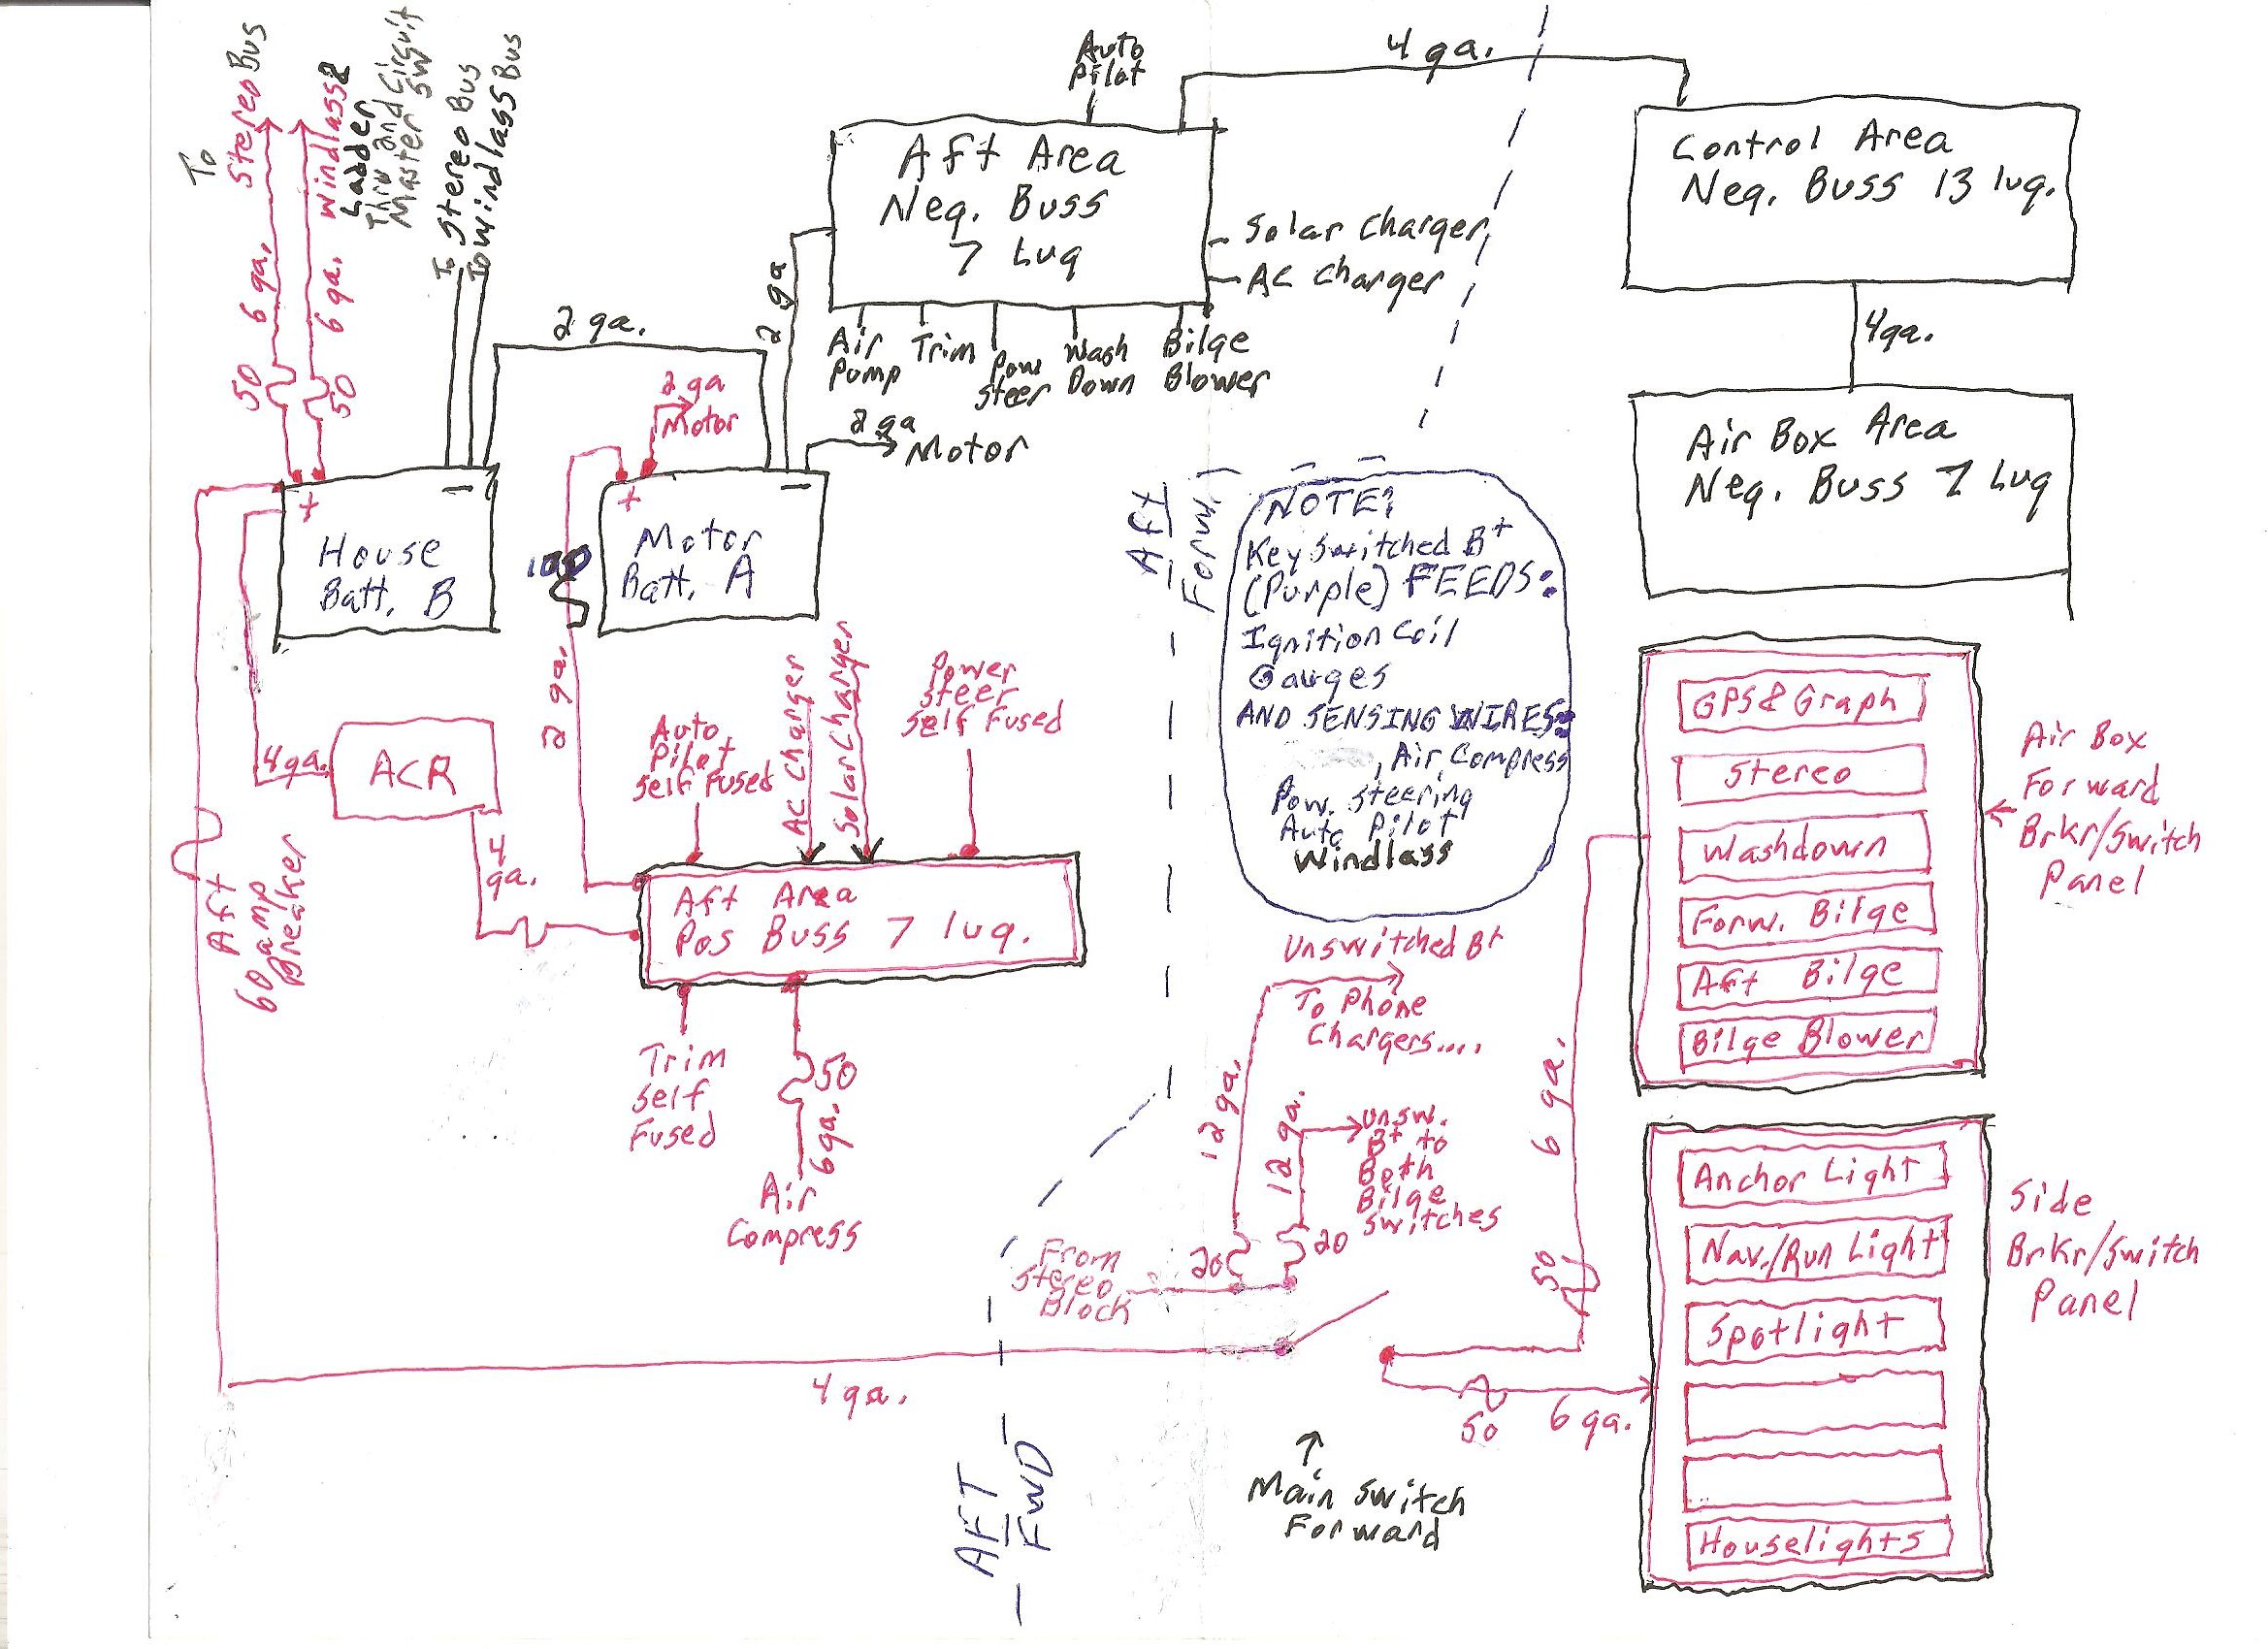 To
Stereo Bus
6 ga.
50
Windlass &
Ladder
Thru 2nd Circuit
Master SW
6 ga.
50
To Stereo Bus
To Windlass Bus
2 ga.
2 ga
Motor
2 ga
2 ga
Motor
+
-
House
Batt. B
+
-
Motor
Batt. A
100
2 ga.
Auto
Pilot
4 ga.
Aft Area
Neg. Buss
7 Lug
Solar Charger
AC Charger
Air
Pump
Trim
Pow
Steer
Wash
Down
Bilge
Blower
Control Area
Neg. Buss 13 lug.
4ga.
Air Box Area
Neg. Buss 7 Lug
Aft
Forw.
NOTE:
Key Switched B+
(Purple) FEEDS:
Ignition Coil
Gauges
AND SENSING WIRES:
, Air Compress
Pow. Steering
Auto Pilot
Windlass
4ga.
ACR
4
ga.
Aft
60 amp
Breaker
Auto
Pilot
Self Fused
AC Charger
Solar Charger
Power
Steer
Self Fused
Aft Area
Pos Buss 7 lug.
Trim
Self
Fused
50
6ga.
Air
Compress
Unswitched B+
To Phone
Chargers....
12 ga.
20
12 ga.
20
Unsw.
B+ to
Both
Bilge
Switches
From
Stereo
Block
4 ga.
AFT
FWD
Main Switch
Forward
6 ga.
50
50
6 ga.
GPS & Graph
Stereo
Washdown
Forw. Bilge
Aft Bilge
Bilge Blower
Air Box
Forward
Brkr/Switch
Panel
Anchor Light
Nav./Run Light
Spotlight
Houselights
Side
Brkr/Switch
Panel